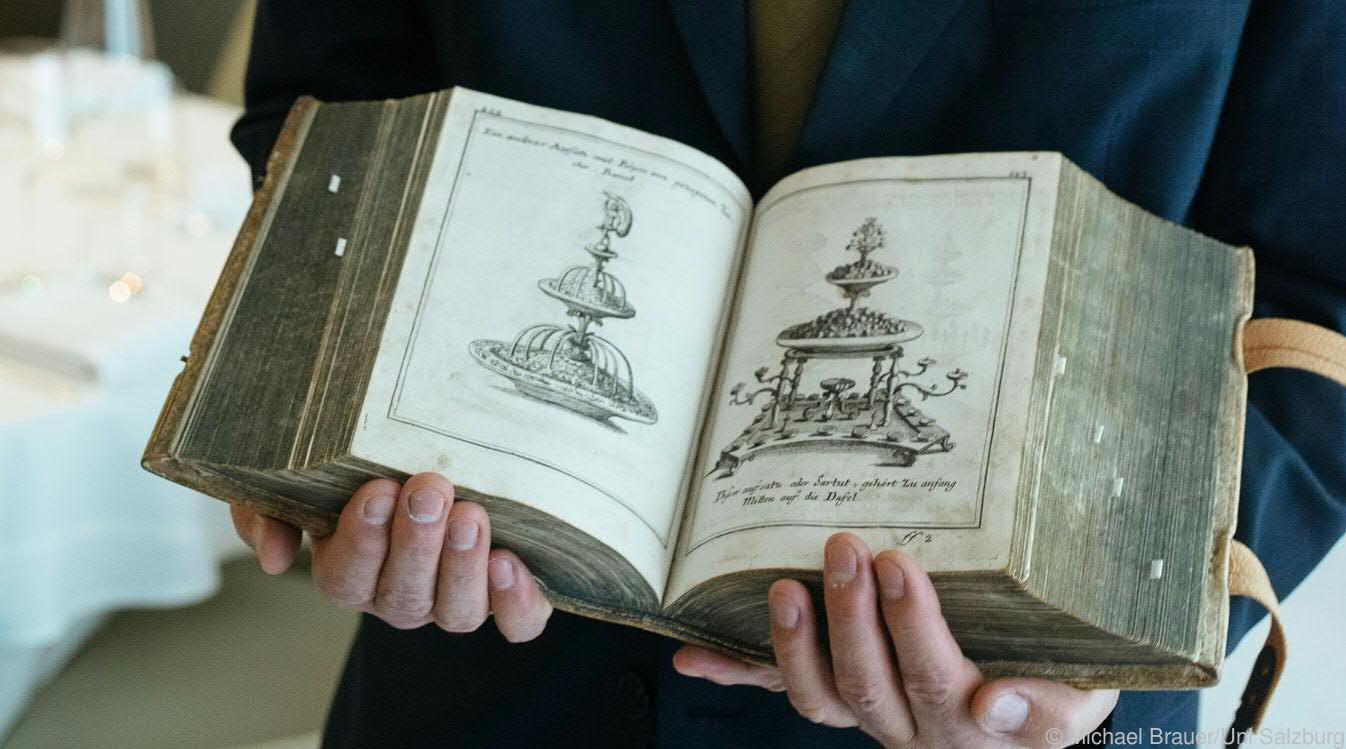 Ein anderer Aufsatz mit
der Kunst
Dißer aufsatz oder Sartut, gehört Zu anfang
Mitten auf die Dafel.
ff 2
© Michael Brauer/Uni Salzburg